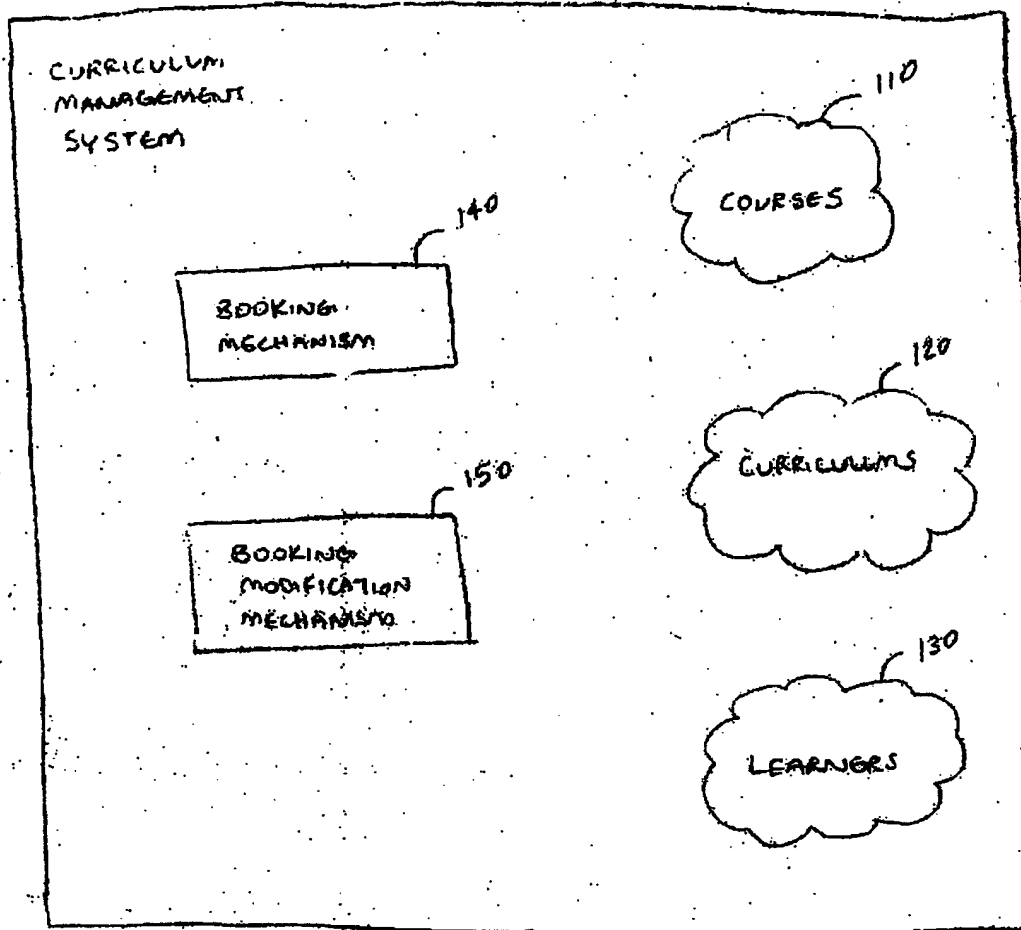 CURRICULUM
MANAGEMENT
SYSTEM
110
COURSES
140
BOOKING
MECHANISM
120
CURRICULUMS
150
BOOKING
MODIFICATION
MECHANISM
130
LEARNERS